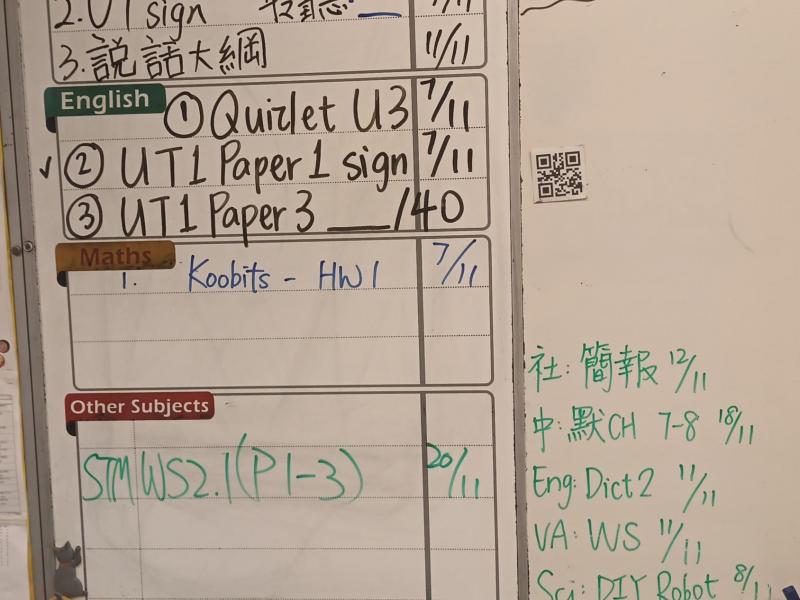 2. UT sign
3. 說話大綱 11/11
English ① Quizlet U3 7/11
✓ ② UT1 Paper 1 sign 7/11
③ UT1 Paper 3 ___/40
Maths
1. Koobits - HW1 7/11
Other Subjects
STM WS2.1(P1-3) 20/11
社: 簡報 12/11
中: 默CH 7-8 18/11
Eng: Dict 2 11/11
VA: WS 11/11
Sci: DIY Robot 8/11